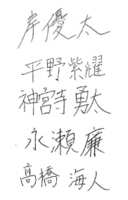 岸優太
平野紫耀
神宮寺勇太
永瀬廉
高橋海人